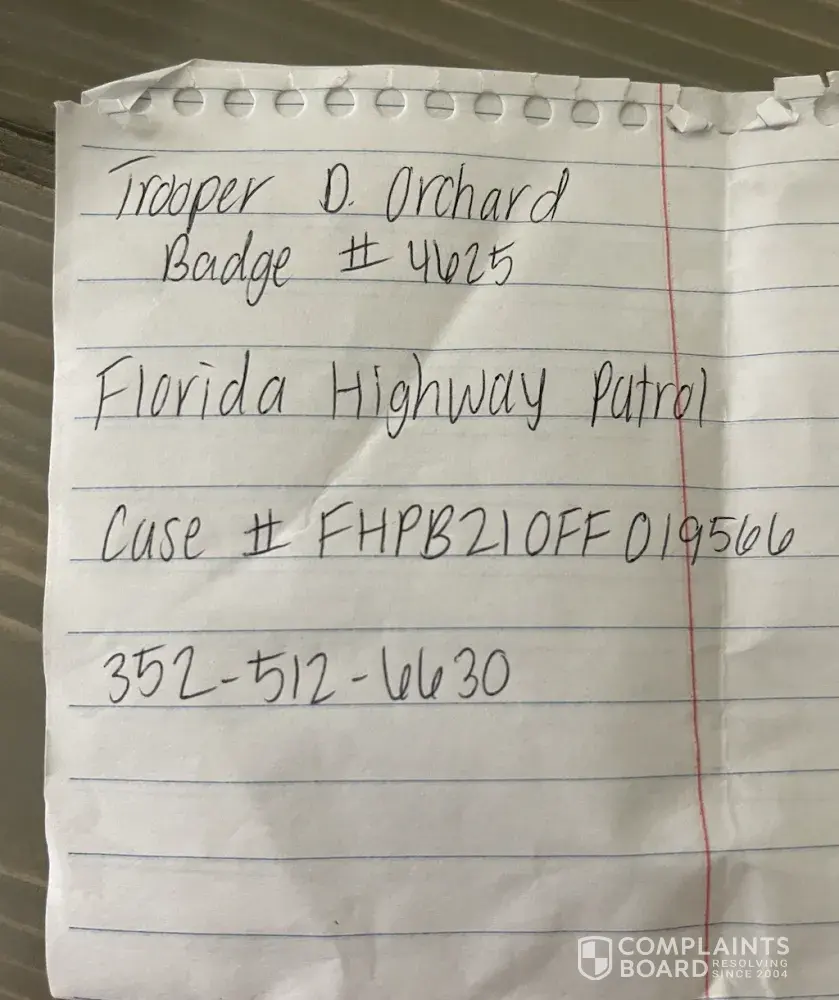 Trooper D. Orchard
Badge # 4625
Florida Highway Patrol
Case # FHPB21OFF019566
352-512-6630
COMPLAINTS
BOARD RESOLVING
SINCE 2004